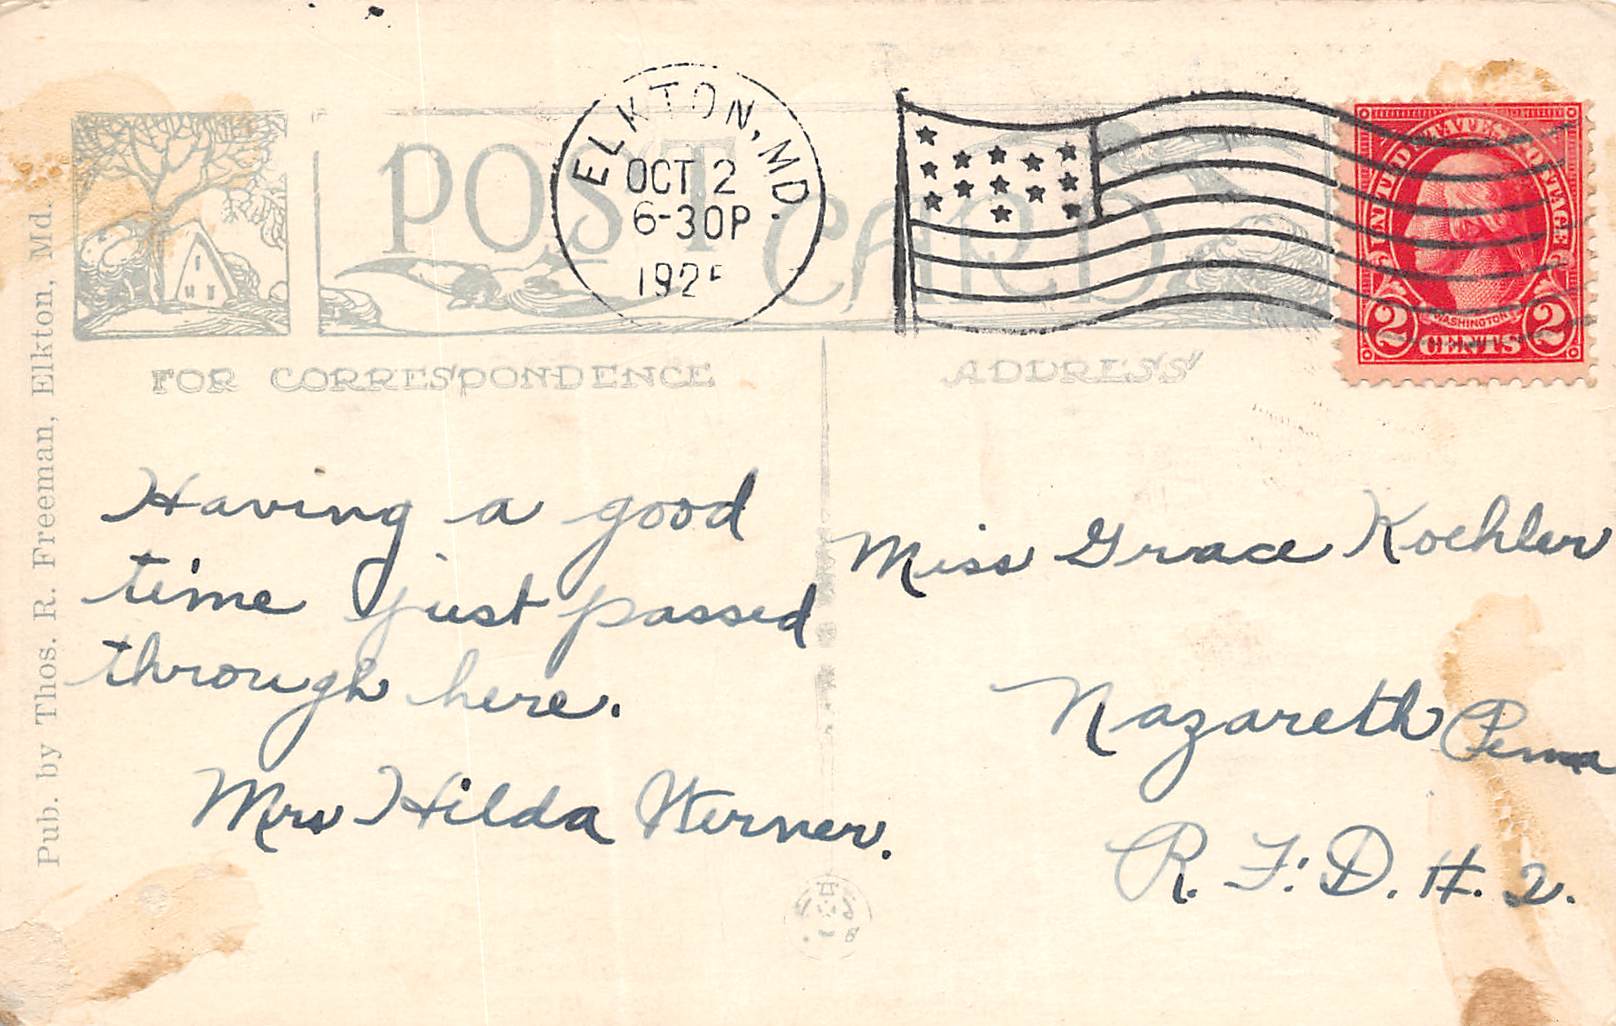 POST CARD
ELKTON, MD.
OCT 2
6-30P
UNITED STATES POSTAGE
WASHINGTON
2 CENTS 2
FOR CORRESPONDENCE
ADDRESS
Pub. by Thos. R. Freeman, Elkton, Md.
Having a good
time just passed
through here.
Mrs Hilda Werner.
Miss Grace Koehler
Nazareth Penna
R. F. D. #. 2.